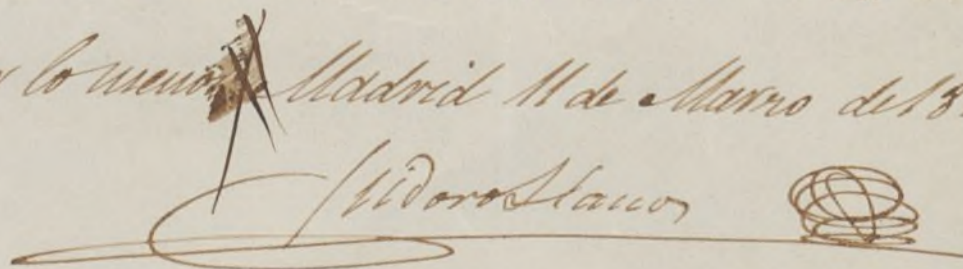 lo menos Madrid 11 de Marzo de 18
Isidoro Llanos